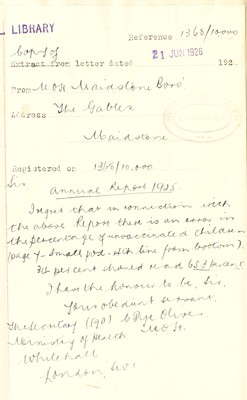 LIBRARY
Reference 1368/10.000
Copy of
Extract from letter dated 21 JUN 1926 192
From M.O.H. Maidstone Boro'
Address The Gables
Maidstone
Registered on 1368/10.000
Sir,
Annual Report 1925
I regret that in connection with
the above Report there is an error in
the percentage of unvaccinated children
(page 7. Small pox. 4th line from bottom).
34 per cent should read 65.2 percent
I have the honour to be, Sir,
Your obedient servant,
The Secretary
Ministry of Health
Whitehall
London, S.W.1